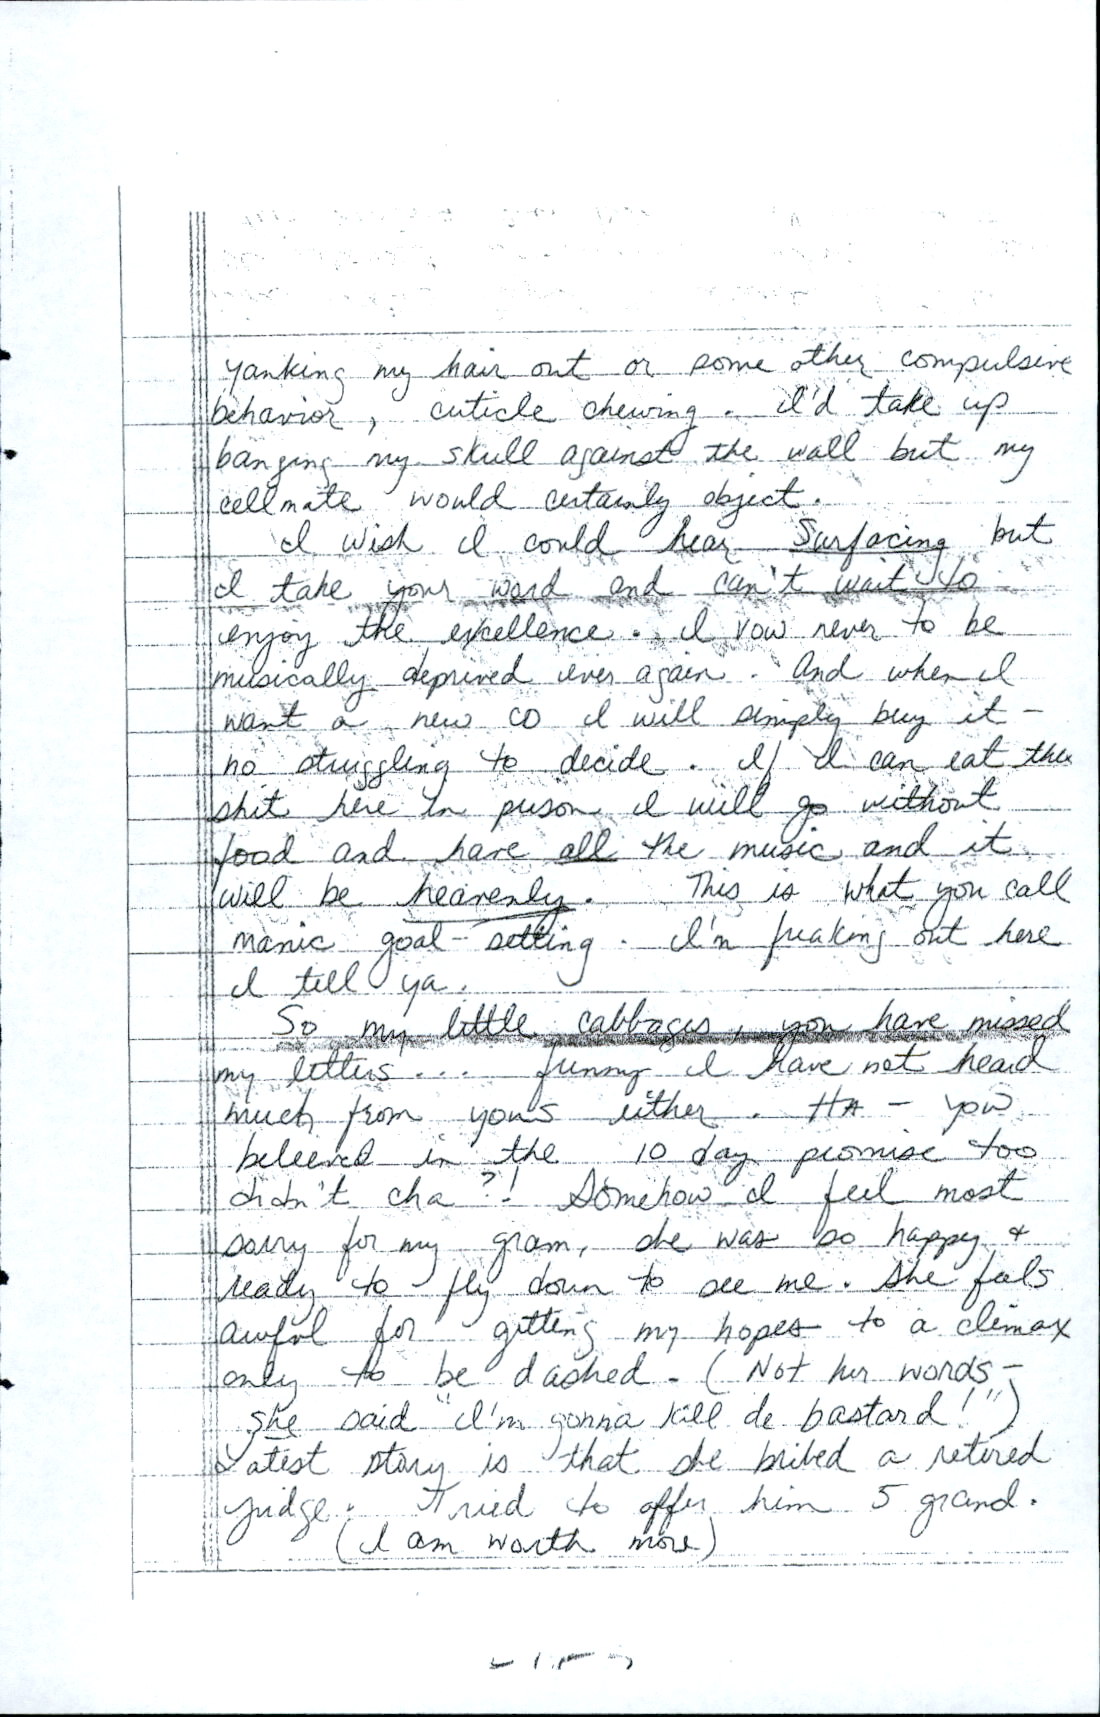 yanking my hair out or some other compulsive
behavior, cuticle chewing. I'd take up
banging my skull against the wall but my
cellmate would certainly object.
I wish I could hear Surfacing but
I take your word and can't wait to
enjoy the excellence. I vow never to be
musically deprived ever again. And when I
want a new CD I will simply buy it -
no struggling to decide. If I can eat the
shit here in prison I will go without
food and have all the music and it
will be heavenly. This is what you call
manic goal-setting. I'm freaking out here
I tell ya.
So my little cabbages, you have missed
my letters... funny I have not heard
much from yous either. HA - you
beleeved in the 10 day promise too
didn't cha?! Somehow I feel most
sorry for my gram, she was so happy &
ready to fly down to see me. She feels
awful for getting my hopes to a climax
only to be dashed. (Not her words -
she said "I'm gonna kill de bastard!")
Latest story is that she bribed a retired
judge. Tried to offer him 5 grand.
(I am worth more)